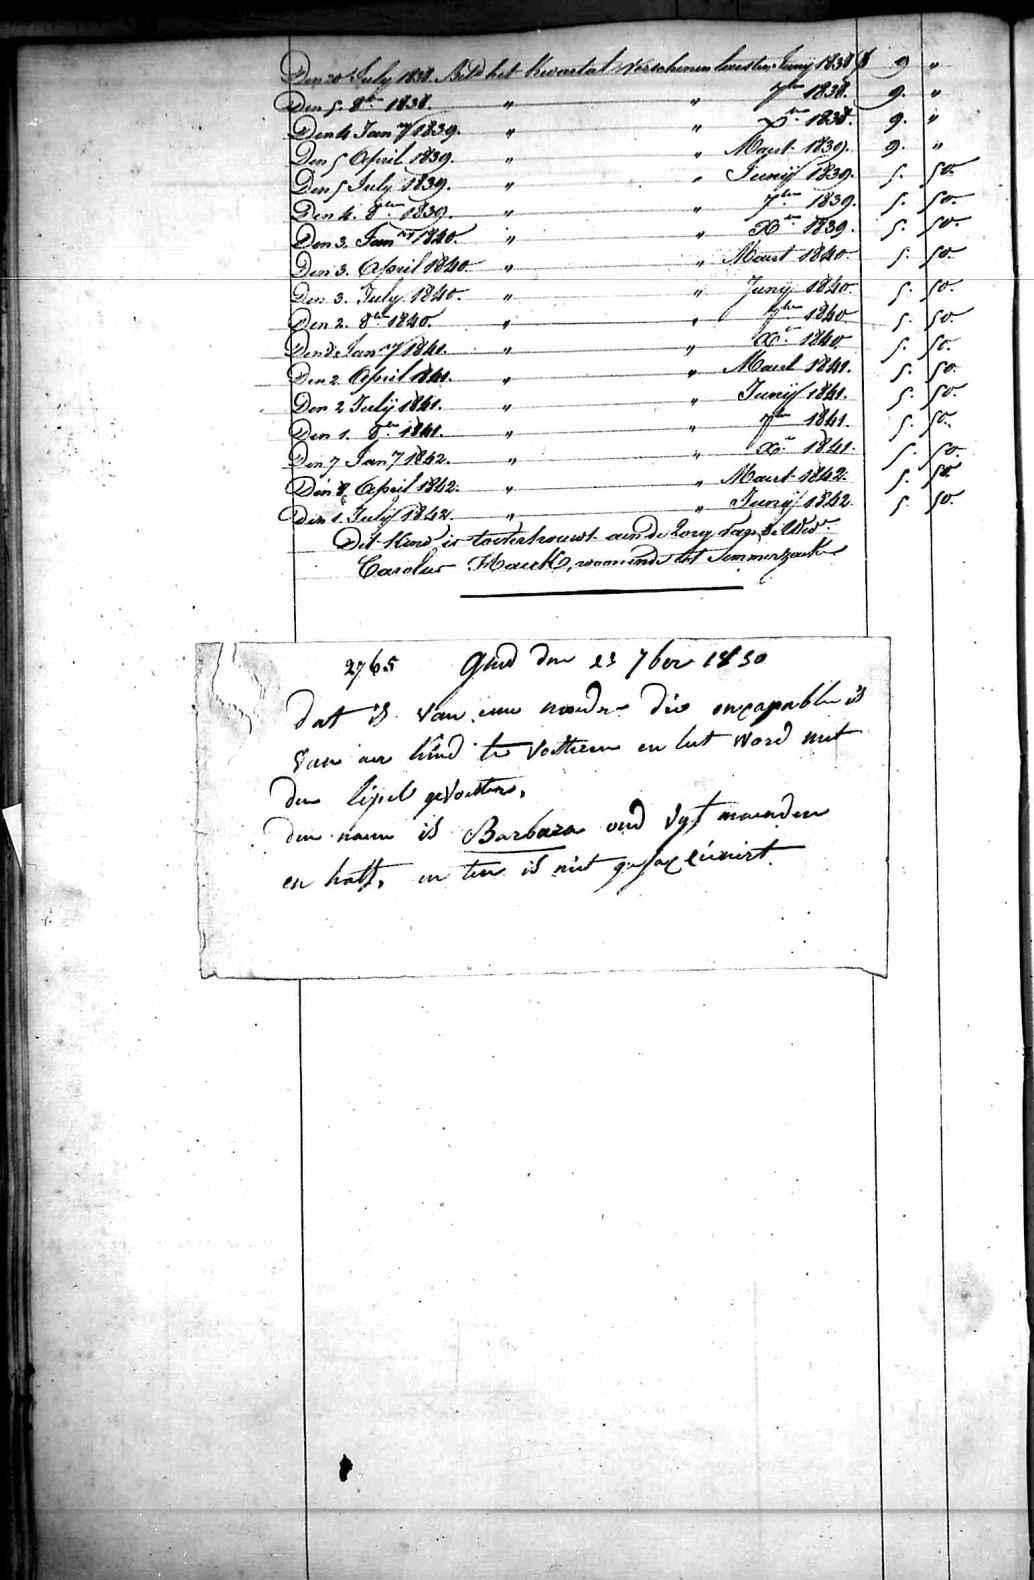 Den 20 July 1838. Bet.d het Kwartal Verschenen leesten Juny 1838 f 9 "
Den 5. 8.ber 1838. " " 7ber 1838. 9. "
Den 4 Jan.ry 1839. " " X.ber 1838. 9. "
Den 5 April 1839. " " Maert 1839. 9. "
Den 5 July 1839. " " Junij 1839. 5. 50.
Den 4. 8.ber 1839. " " 7.ber 1839. 5. 50.
Den 3. Jan.ry 1840. " " X.ber 1839. 5. 50.
Den 3. April 1840. " " Maert 1840. 5. 50.
Den 3. July 1840. " " Juny 1840. 5. 50.
Den 2. 8.ber 1840. " " 7ber 1840. 5. 50.
Den Jan.ry 1841. " " X.r 1840. 5. 50.
Den 2 April 1841. " " Maert 1841. 5. 50.
Den 2 Julij 1841. " " Junij 1841. 5. 50.
Den 1. 8.ber 1841. " " 7ber 1841. 5. 50.
Den 7 Jan.ry 1842. " " X.r 1841. 5. 50.
Den 8 April 1842. " " Maert 1842. 5. 50.
Den 1. July 1842. " " Junij 1842. 5. 50.
Dit Kind is toevertrouwt aen de Zorg van de Wed.e
Carolus Haeck, woonende tot Semmerzaeke
2765 Gend den 23 7ber 1830
dat is van eene moeder die oncapable is
van aer kind te voetteren en het word met
den lepel gevoettert,
den naem is Barbara oud vyf maenden
en half, en ten is niet gevaxcineirt